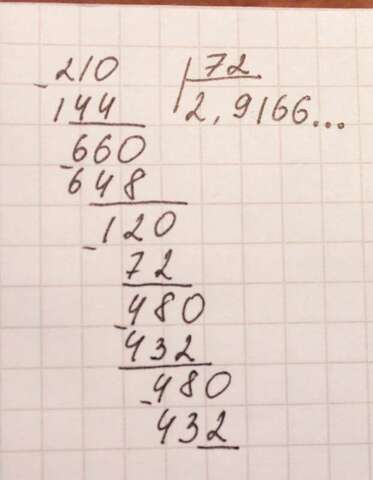 210 72
- 144 2,9166...
660
- 648
120
- 72
480
- 432
480
- 432